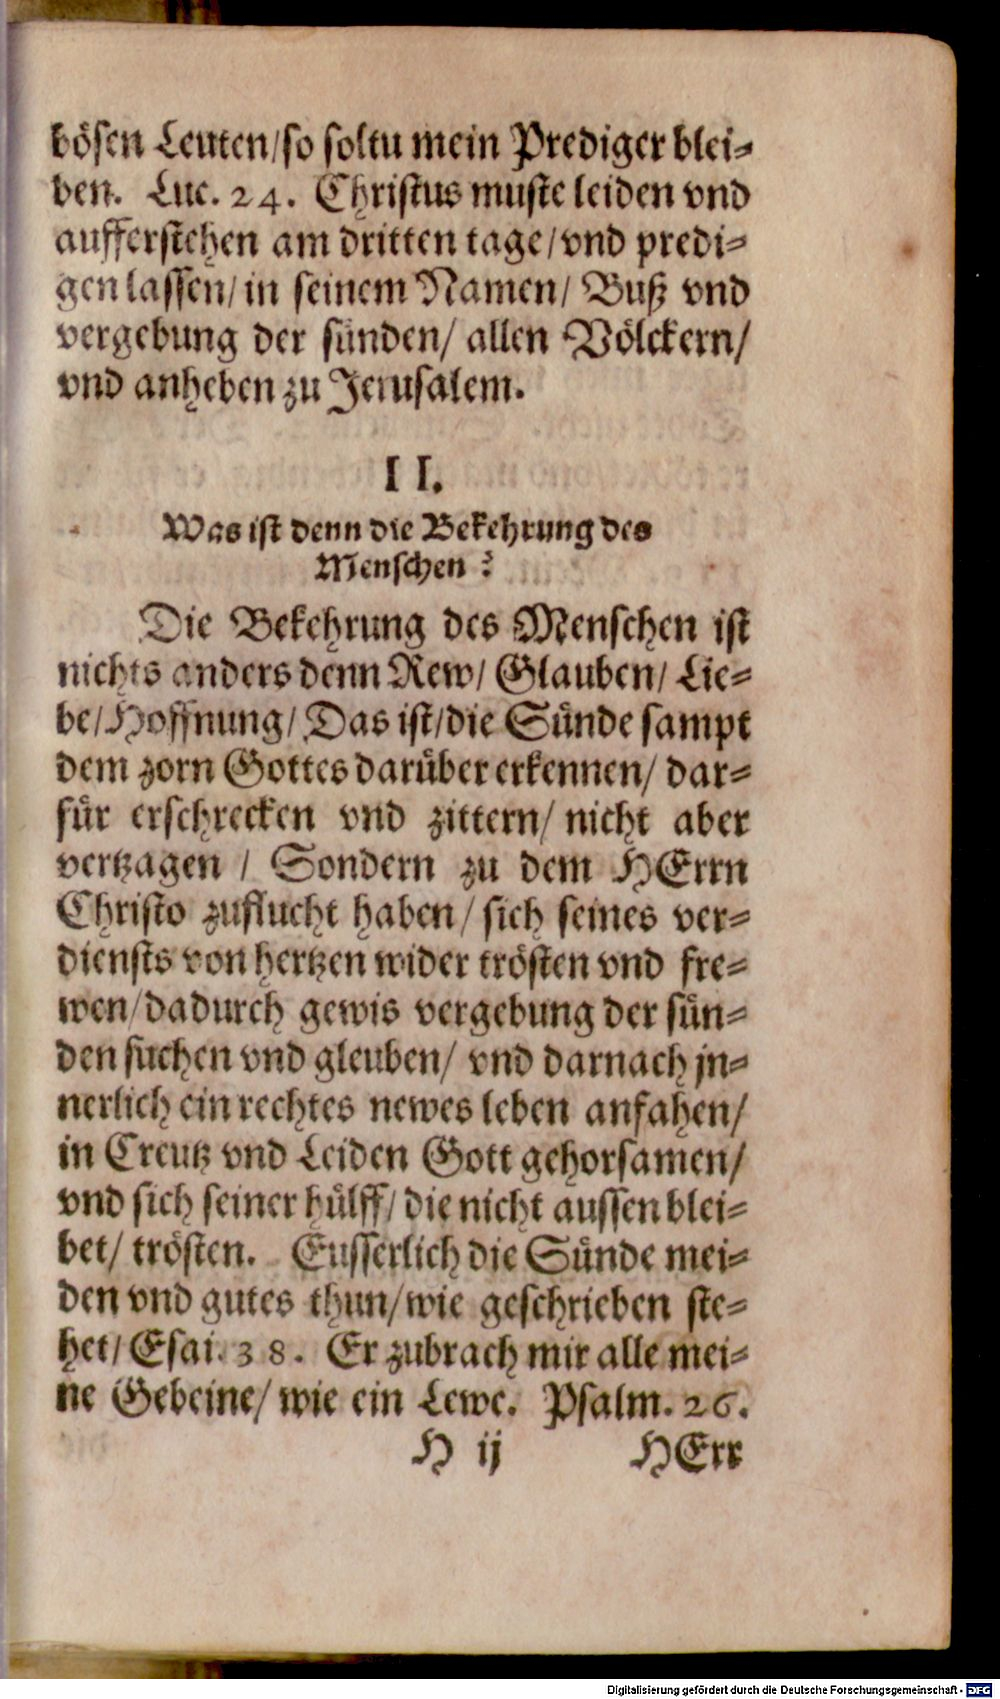 bösen Leuten/so soltu mein Prediger blei-
ben. Luc. 24. Christus muste leiden vnd
aufferstehen am dritten tage/vnd predi-
gen lassen/in seinem Namen/ Buß vnd
vergebung der sünden/ allen Völckern/
vnd anheben zu Jerusalem.
II.
Was ist denn die Bekehrung des
Menschen?
Die Bekehrung des Menschen ist
nichts anders denn Rew/ Glauben/ Lie-
be/Hoffnung/Das ist/die Sünde sampt
dem zorn Gottes darüber erkennen/ dar-
für erschrecken vnd zittern/ nicht aber
vertzagen / Sondern zu dem HErrn
Christo zuflucht haben/ sich seines ver-
diensts von hertzen wider trösten vnd fre-
wen/dadurch gewis vergebung der sün-
den suchen vnd gleuben/ vnd darnach jn-
nerlich ein rechtes newes leben anfahen/
in Creutz vnd Leiden Gott gehorsamen/
vnd sich seiner hülff/die nicht aussen blei-
bet/ trösten. Eusserlich die Sünde mei-
den vnd gutes thun/wie geschrieben ste-
het/Esai. 38. Er zubrach mir alle mei-
ne Gebeine/ wie ein Lewe. Psalm. 26.
H ij HErr
Digitalisierung gefördert durch die Deutsche Forschungsgemeinschaft - DFG